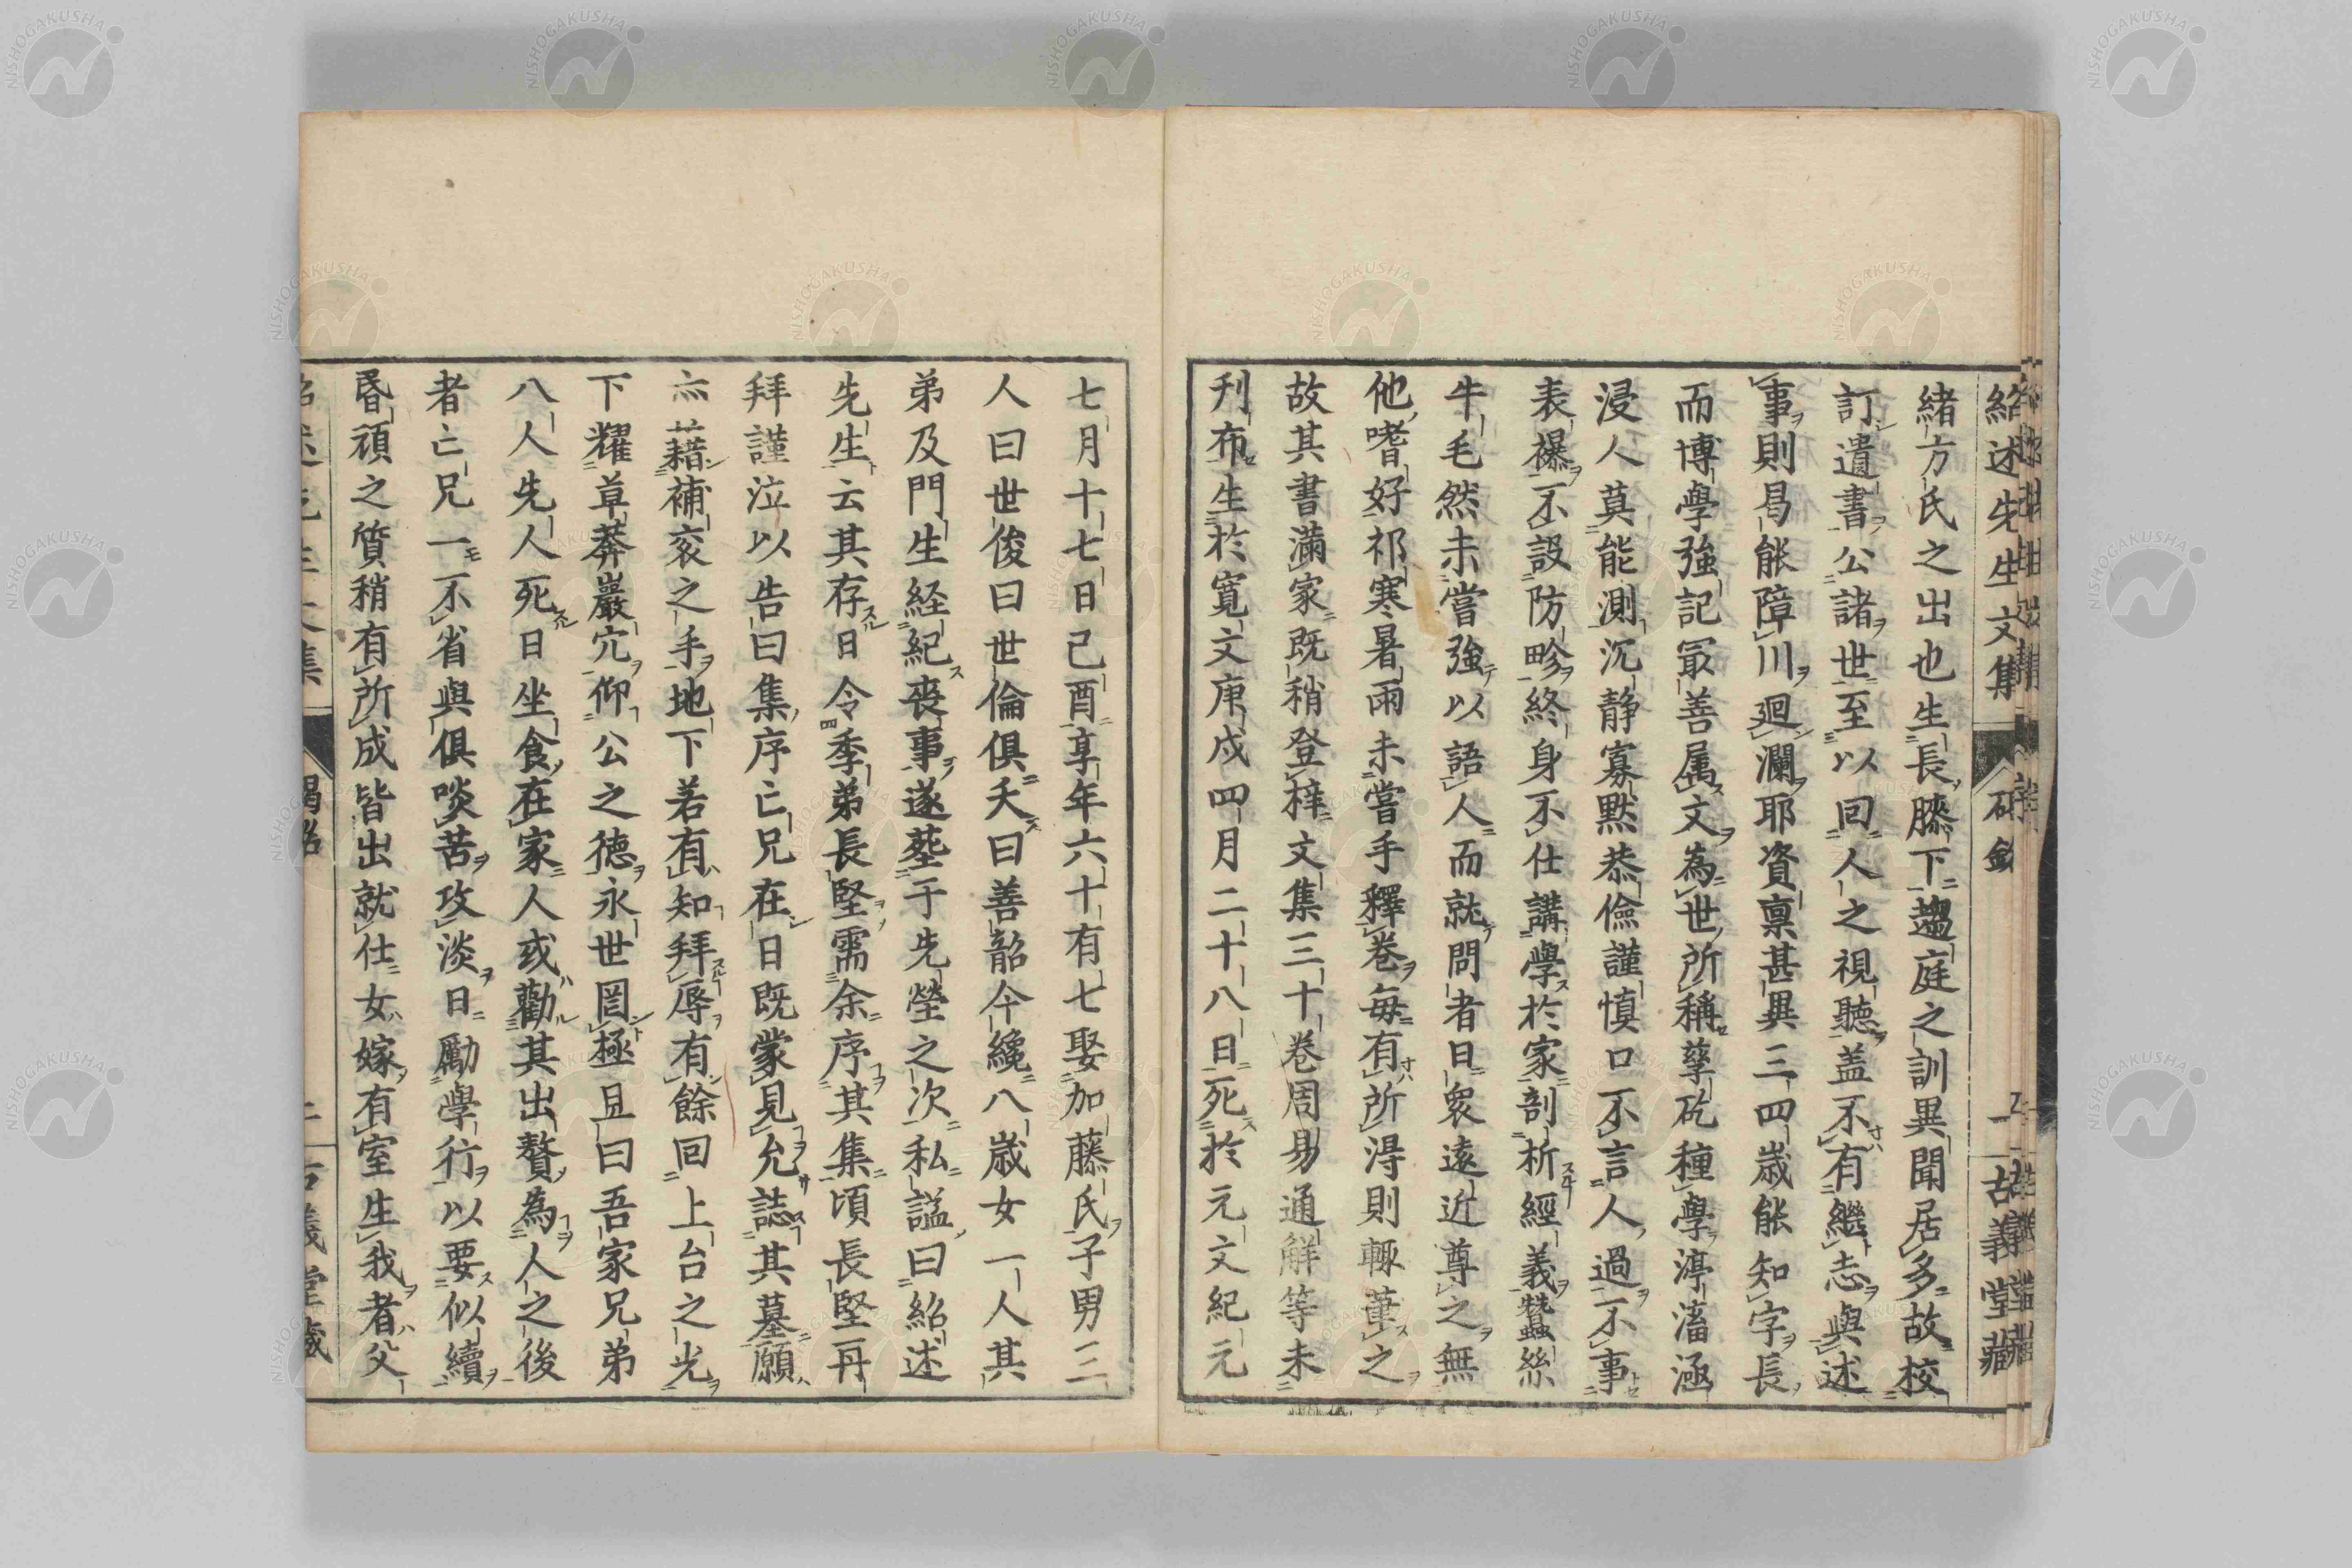 紹述先生文集 碣銘 一 古義堂藏
緒方氏之出也生長膝下趨庭之訓異聞居多故校
訂遺書公諸世至以回人之視聽盖不有繼志與述
事則曷能障川廻瀾耶資禀甚異三四歳能知字長
而博學強記㝡善属文為世所稱孳矻種學渟滀涵
浸人莫能測沉静寡黙恭儉謹慎口不言人過不事
表襮不設防畛終身不仕講學於家剖析經義蠶絲
牛毛然未嘗強以語人而就問者日衆遠近尊之無
他嗜好祁寒暑雨未嘗手釋卷毎有所得則輙葷之
故其書滿家既稍登梓文集三十卷周易通觧等未
刋布生於寛文庚戌四月二十八日死於元文紀元
七月十七日己酉享年六十有七娶加藤氏子男三
人曰世俊曰世倫俱夭曰善韶今纔八歳女一人其
弟及門生経紀喪事遂塟于先塋之次私謚曰紹述
先生云其存日令季弟長堅需余序其集頃長堅再
拜謹泣以告曰集序亡兄在日既蒙見允誌其墓願
亦藉補衮之手地下若有知拜辱有餘回上台之光
下耀草莽巖穴仰公之德永世罔極且曰吾家兄弟
八人先人死日坐食在家人或勸其出贅為人之後
者亡兄一不省與俱啖苦攻淡日勵學行以要似續
昏頑之質稍有所成皆出就仕女嫁有室生我者父
紹述先生文集 碣銘 二 古義堂藏
NISHOGAKUSHA